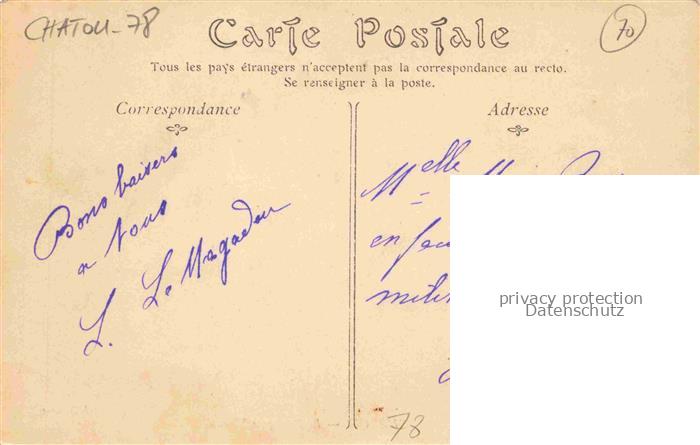 CHATOU-78
70
Carte Postale
Tous les pays étrangers n'acceptent pas la correspondance au recto.
Se renseigner à la poste.
Correspondance
Adresse
Bons baisers
a tous
L. Le
Melle
en
privacy protection
Datenschutz
78